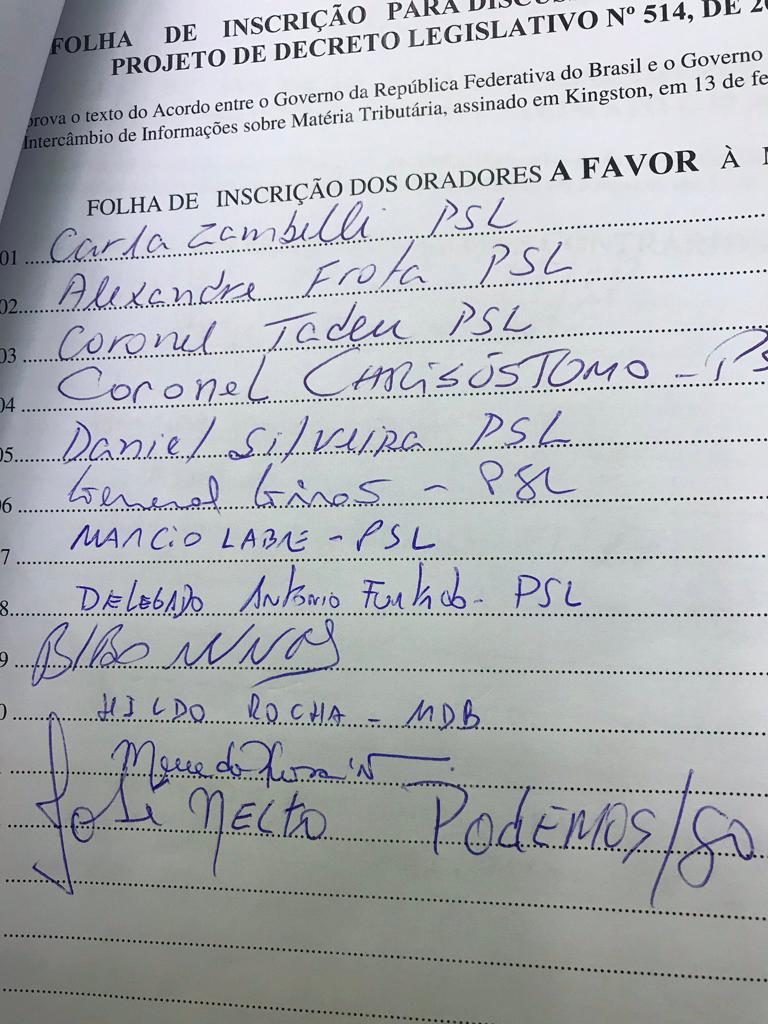 FOLHA DE INSCRIÇÃO PARA DISCUS
PROJETO DE DECRETO LEGISLATIVO Nº 514, DE 20
prova o texto do Acordo entre o Governo da República Federativa do Brasil e o Governo
Intercâmbio de Informações sobre Matéria Tributária, assinado em Kingston, em 13 de fe
FOLHA DE INSCRIÇÃO DOS ORADORES A FAVOR À
01 Carla Zambelli PSL
02 Alexandre Frota PSL
03 Coronel Tadeu PSL
04 Coronel CHRISÓSTOMO - PS
05 Daniel Silveira PSL
6 General Girao - PSL
7 MARCIO LABRE - PSL
8 DELEGADO Antonio Furtado - PSL
9 BIBO NUNES
0 HILDO ROCHA - MDB
José NELTO PODEMOS/GO